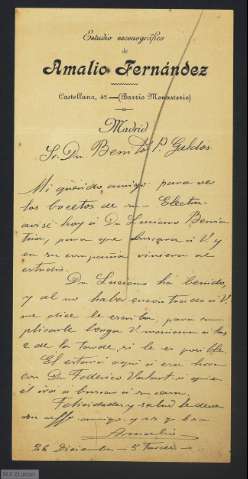 Estudio escenográfico
de
Amalio Fernández
Castellana, (Barrio Monasterio)
Madrid
Sr. Dn. Benito P. Galdós
Mi querido amigo: para ver
los bocetos de su Electra
avisé hoy á Dn Luciano
para que buscara á V. y
en su compañía vinieran al
estudio.
Dn Luciano ha venido,
y al no haber encontrado á V.
me dice le escriba, para
suplicarle venga V. mañana á las
2 de la tarde, si le es posible.
El estará aquí á esa hora
con Dn Federico á quien
él irá á buscar á su casa.
Felicidades y salud le desea
su affmo amigo
Amalio
26 Diciembre